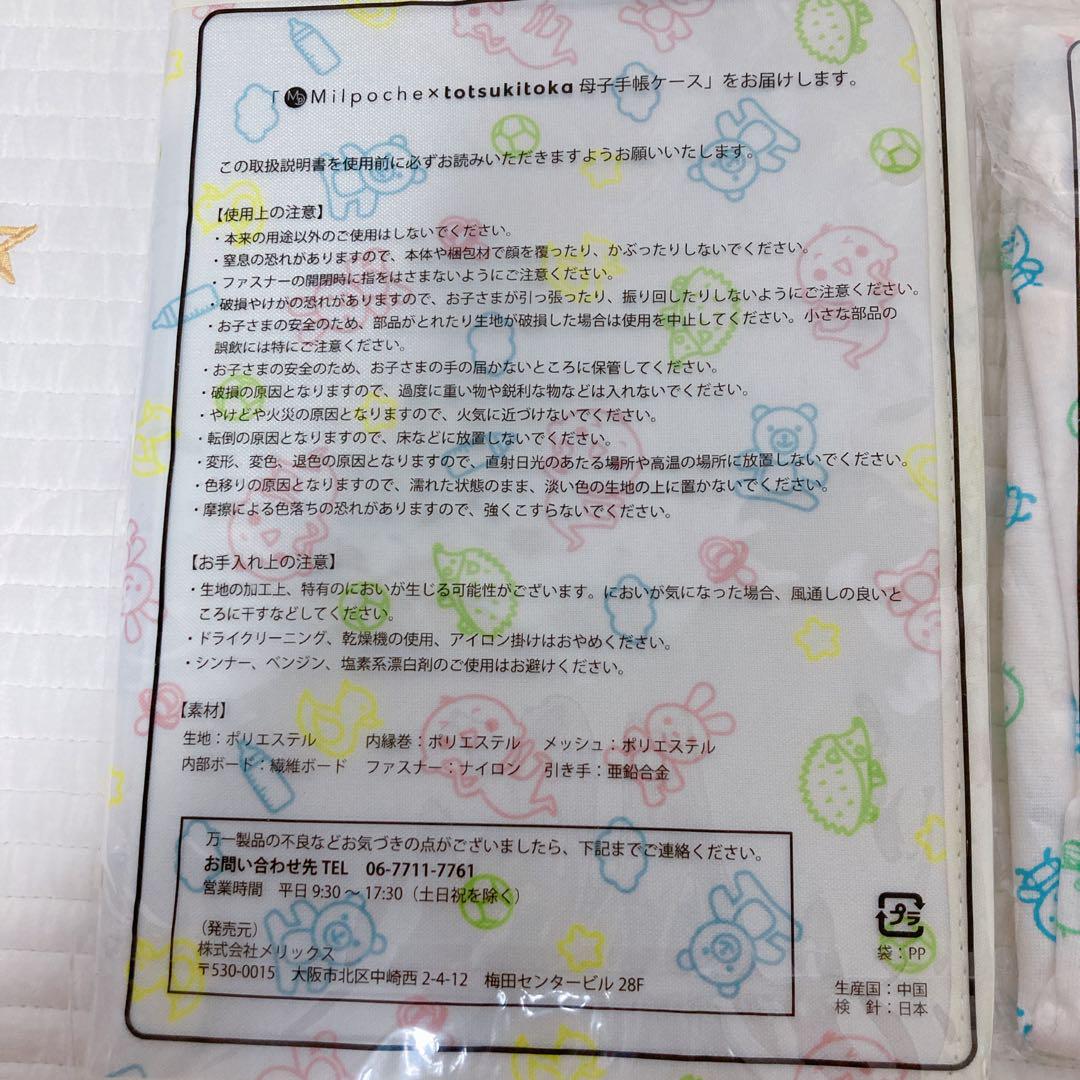 「MPMilpoche×totsukitoka 母子手帳ケース」をお届けします。
この取扱説明書を使用前に必ずお読みいただきますようお願いいたします。
【使用上の注意】
・本来の用途以外のご使用はしないでください。
・窒息の恐れがありますので、本体や梱包材で顔を覆ったり、かぶったりしないでください。
・ファスナーの開閉時に指をはさまないようにご注意ください。
・破損やけがの恐れがありますので、お子さまが引っ張ったり、振り回したりしないようにご注意ください。
・お子さまの安全のため、部品がとれたり生地が破損した場合は使用を中止してください。小さな部品の
誤飲には特にご注意ください。
・お子さまの安全のため、お子さまの手の届かないところに保管してください。
・破損の原因となりますので、過度に重い物や鋭利な物などは入れないでください。
・やけどや火災の原因となりますので、火気に近づけないでください。
・転倒の原因となりますので、床などに放置しないでください。
・変形、変色、退色の原因となりますので、直射日光のあたる場所や高温の場所に放置しないでください。
・色移りの原因となりますので、濡れた状態のまま、淡い色の生地の上に置かないでください。
・摩擦による色落ちの恐れがありますので、強くこすらないでください。
【お手入れ上の注意】
・生地の加工上、特有のにおいが生じる可能性がございます。においが気になった場合、風通しの良いと
ころに干すなどしてください。
・ドライクリーニング、乾燥機の使用、アイロン掛けはおやめください。
・シンナー、ベンジン、塩素系漂白剤のご使用はお避けください。
【素材】
生地：ポリエステル　内縁巻：ポリエステル　メッシュ：ポリエステル
内部ボード：繊維ボード　ファスナー：ナイロン　引き手：亜鉛合金
万一製品の不良などお気づきの点がございましたら、下記までご連絡ください。
お問い合わせ先 TEL　06-7711-7761
営業時間　平日 9:30 ～ 17:30（土日祝を除く）
（発売元）
株式会社メリックス
〒530-0015　大阪市北区中崎西 2-4-12　梅田センタービル 28F
プラ
袋：PP
生産国：中国
検　針：日本